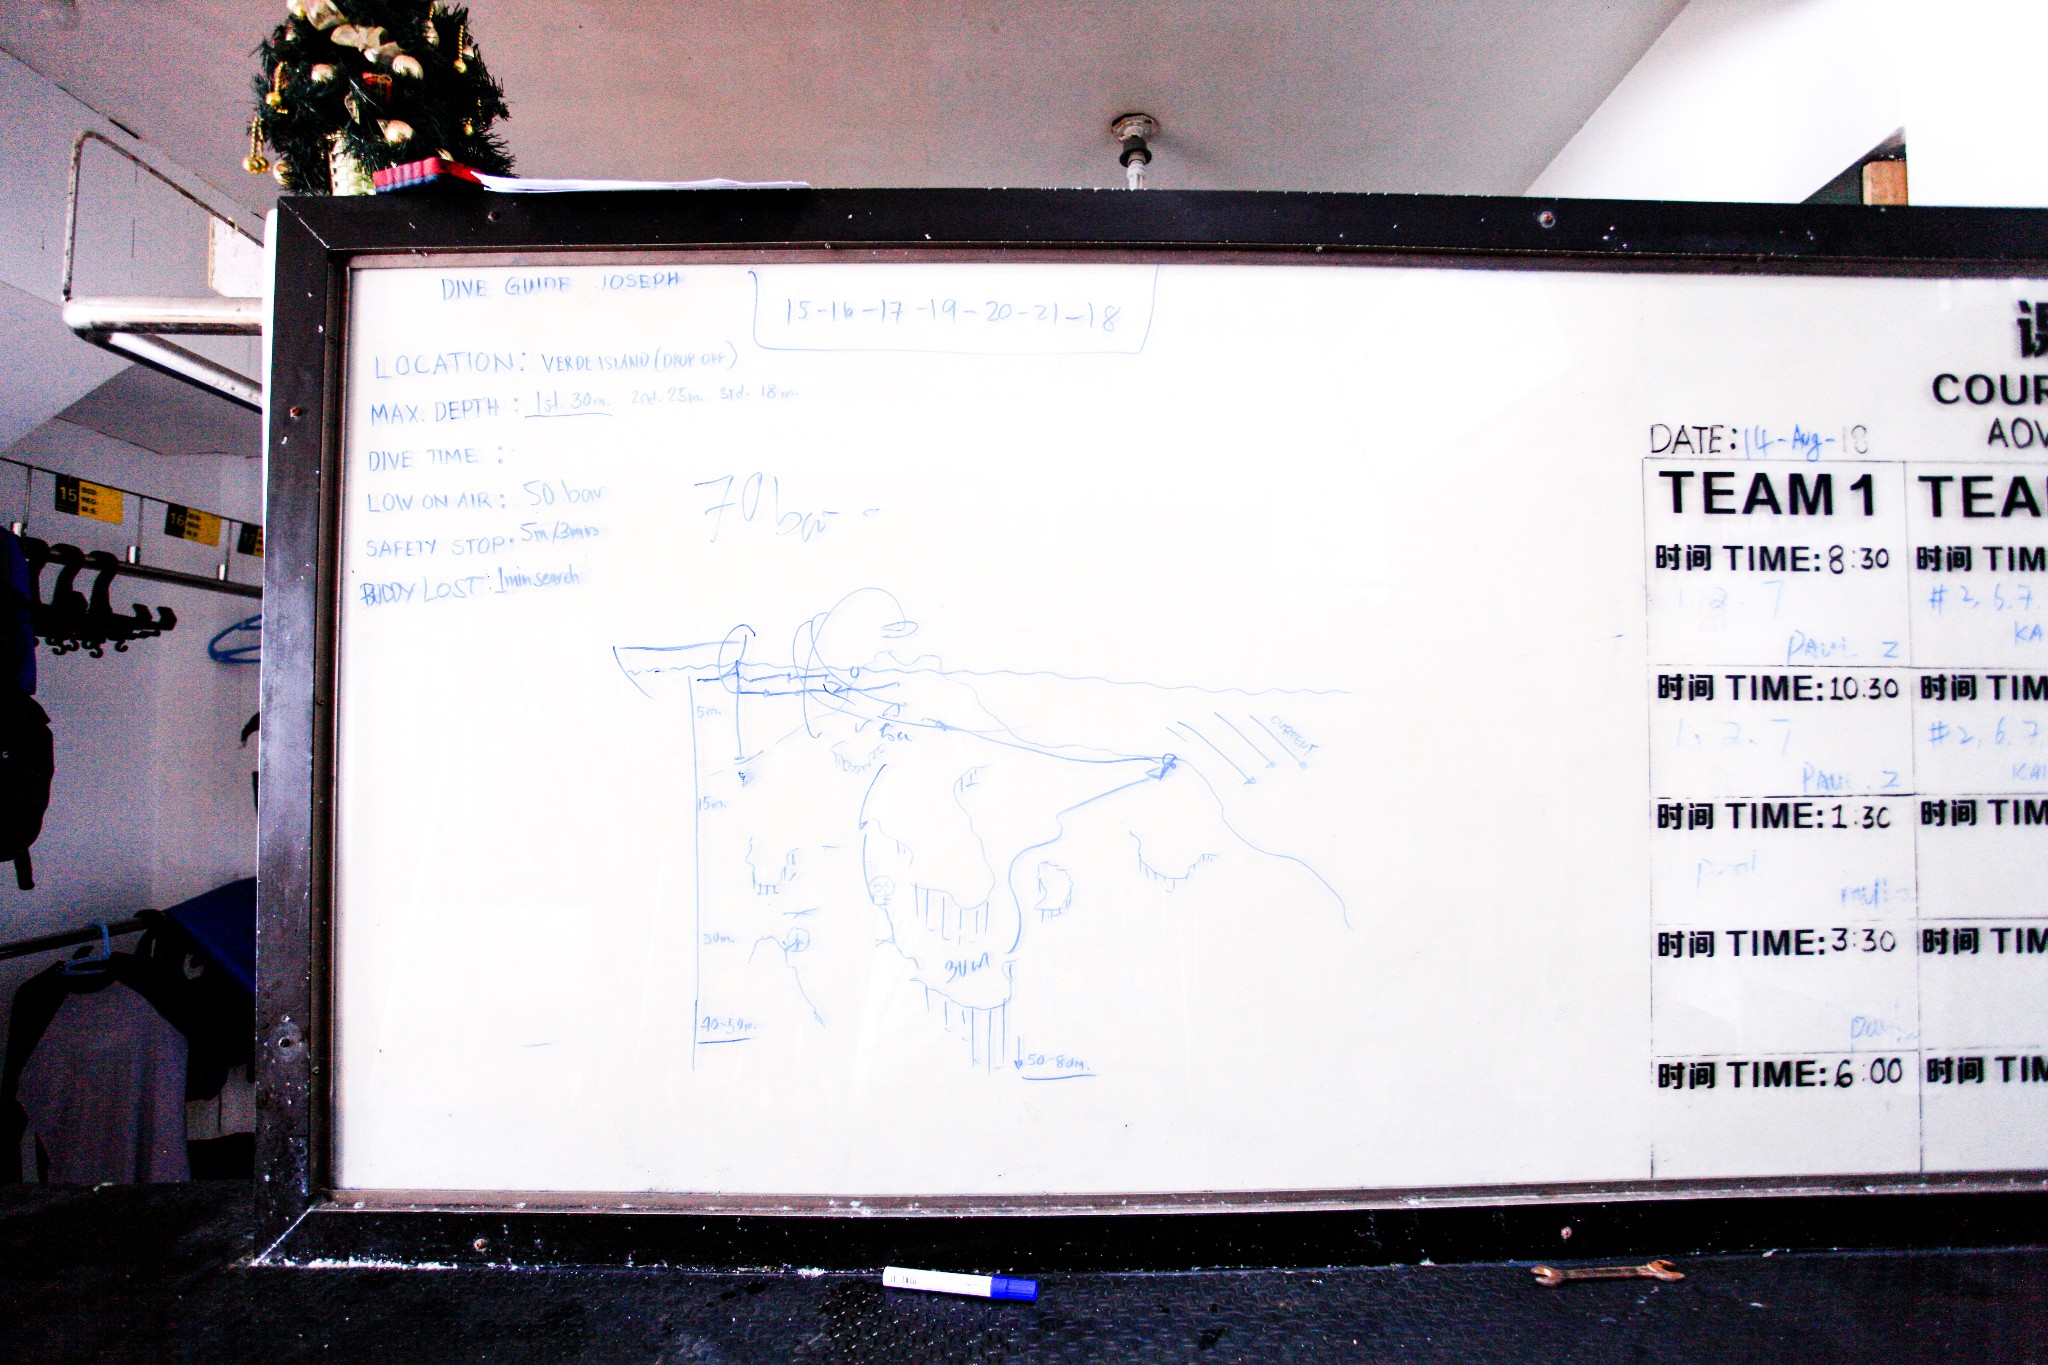 DIVE GUIDE JOSEPH
15-16-17-19-20-21-18
LOCATION: VERDE ISLAND (DROP OFF)
MAX. DEPTH: 1st. 30m. 2nd. 25m. 3rd. 18m.
DIVE TIME :
LOW ON AIR: 50 bar
70 bar
SAFETY STOP: 5m/3min
BUDDY LOST: 1min search
5m.
CURRENT
15m.
30m.
30m
40-50m.
50-80m.
COUR
AOW
DATE: 14-Aug-18
TEAM 1
TEA
时间 TIME: 8:30
时间 TIM
1. 2. 7
# 2, 6, 7.
PAUL Z
KA
时间 TIME: 10:30
时间 TIM
1. 2. 7
#2, 6, 7
PAUL Z
KA
时间 TIME: 1:30
时间 TIM
pool
时间 TIME: 3:30
时间 TIM
时间 TIME: 6:00
时间 TIM
15
16